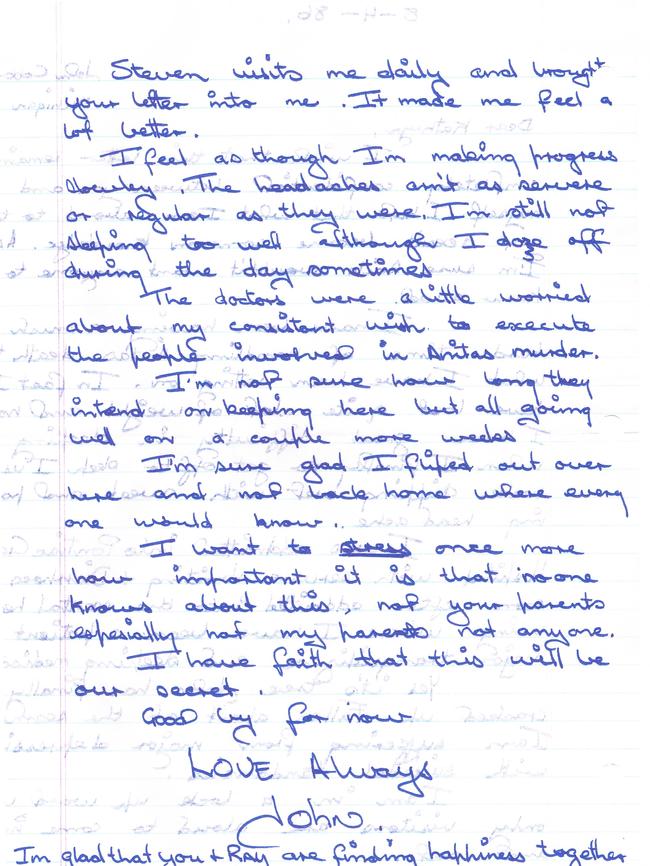 Steven visits me daily and brought
your letter into me. It made me feel a
lot better.
I feel as though I'm making progress
slowley. The headaches arn't as servere
or regular as they were. I'm still not
sleeping too well although I doze off
during the day sometimes
The doctors were a little worried
about my consistant wish to execute
the people involved in Anitas murder.
I'm not sure how long they
intend on keeping here but all going
well on a couple more weeks
I'm sure glad I fliped out over
here and not back home where every
one would know..
I want to stress once more
how important it is that no-one
knows about this, not your parents
espesially not my parents not anyone.
I have faith that this will be
our secret.
Good by for now
LOVE Always
John.
Im glad that you + RAY are finding happiness together